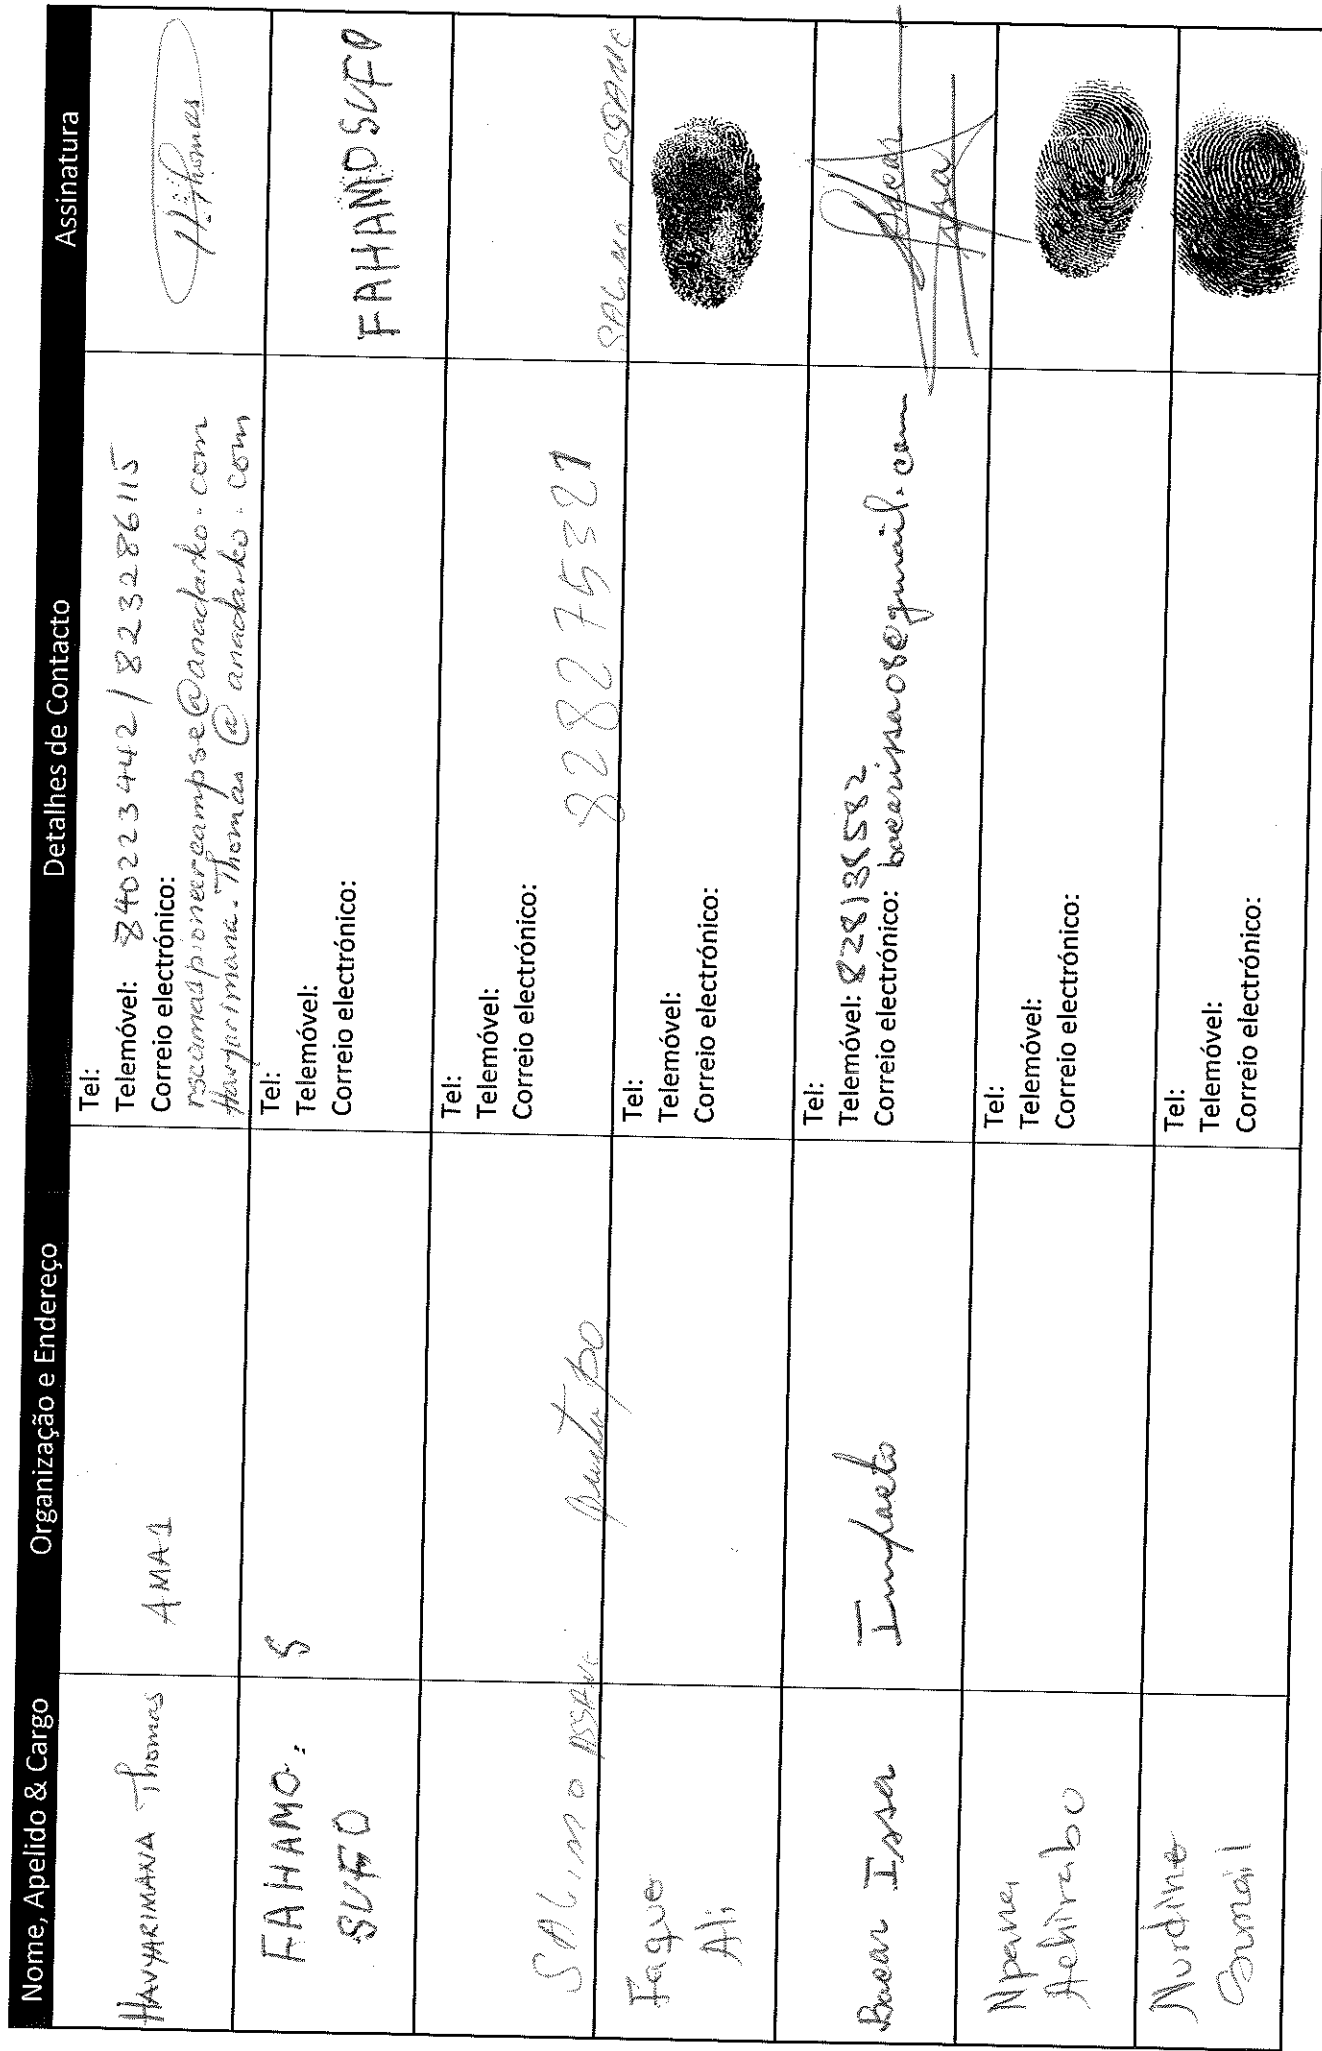 Nome, Apelido & Cargo Organização e Endereço Detalhes de Contacto Assinatura
HAVYARIMANA Thomas
AMA1
Tel:
Telemóvel: 840223442 / 823286115
Correio electrónico:
rscamaspioneercampse@anadarko.com
Havyarimana.Thomas@anadarko.com
H.Thomas
FAHAMO.
SUFO
S
Tel:
Telemóvel:
Correio electrónico:
FAHAMOSUFO
SALIMO ASSANE
Tel:
Telemóvel:
Correio electrónico:
828275321
SALIMO ASSANE
Faque
Ali
Tel:
Telemóvel:
Correio electrónico:
Bacar Issa
Impacto
Tel:
Telemóvel: 828138582
Correio electrónico: bacarissa08@gmail.com
Bacar
Issa
Npana
Achirabo
Tel:
Telemóvel:
Correio electrónico:
Nurdine
Sumail
Tel:
Telemóvel:
Correio electrónico: